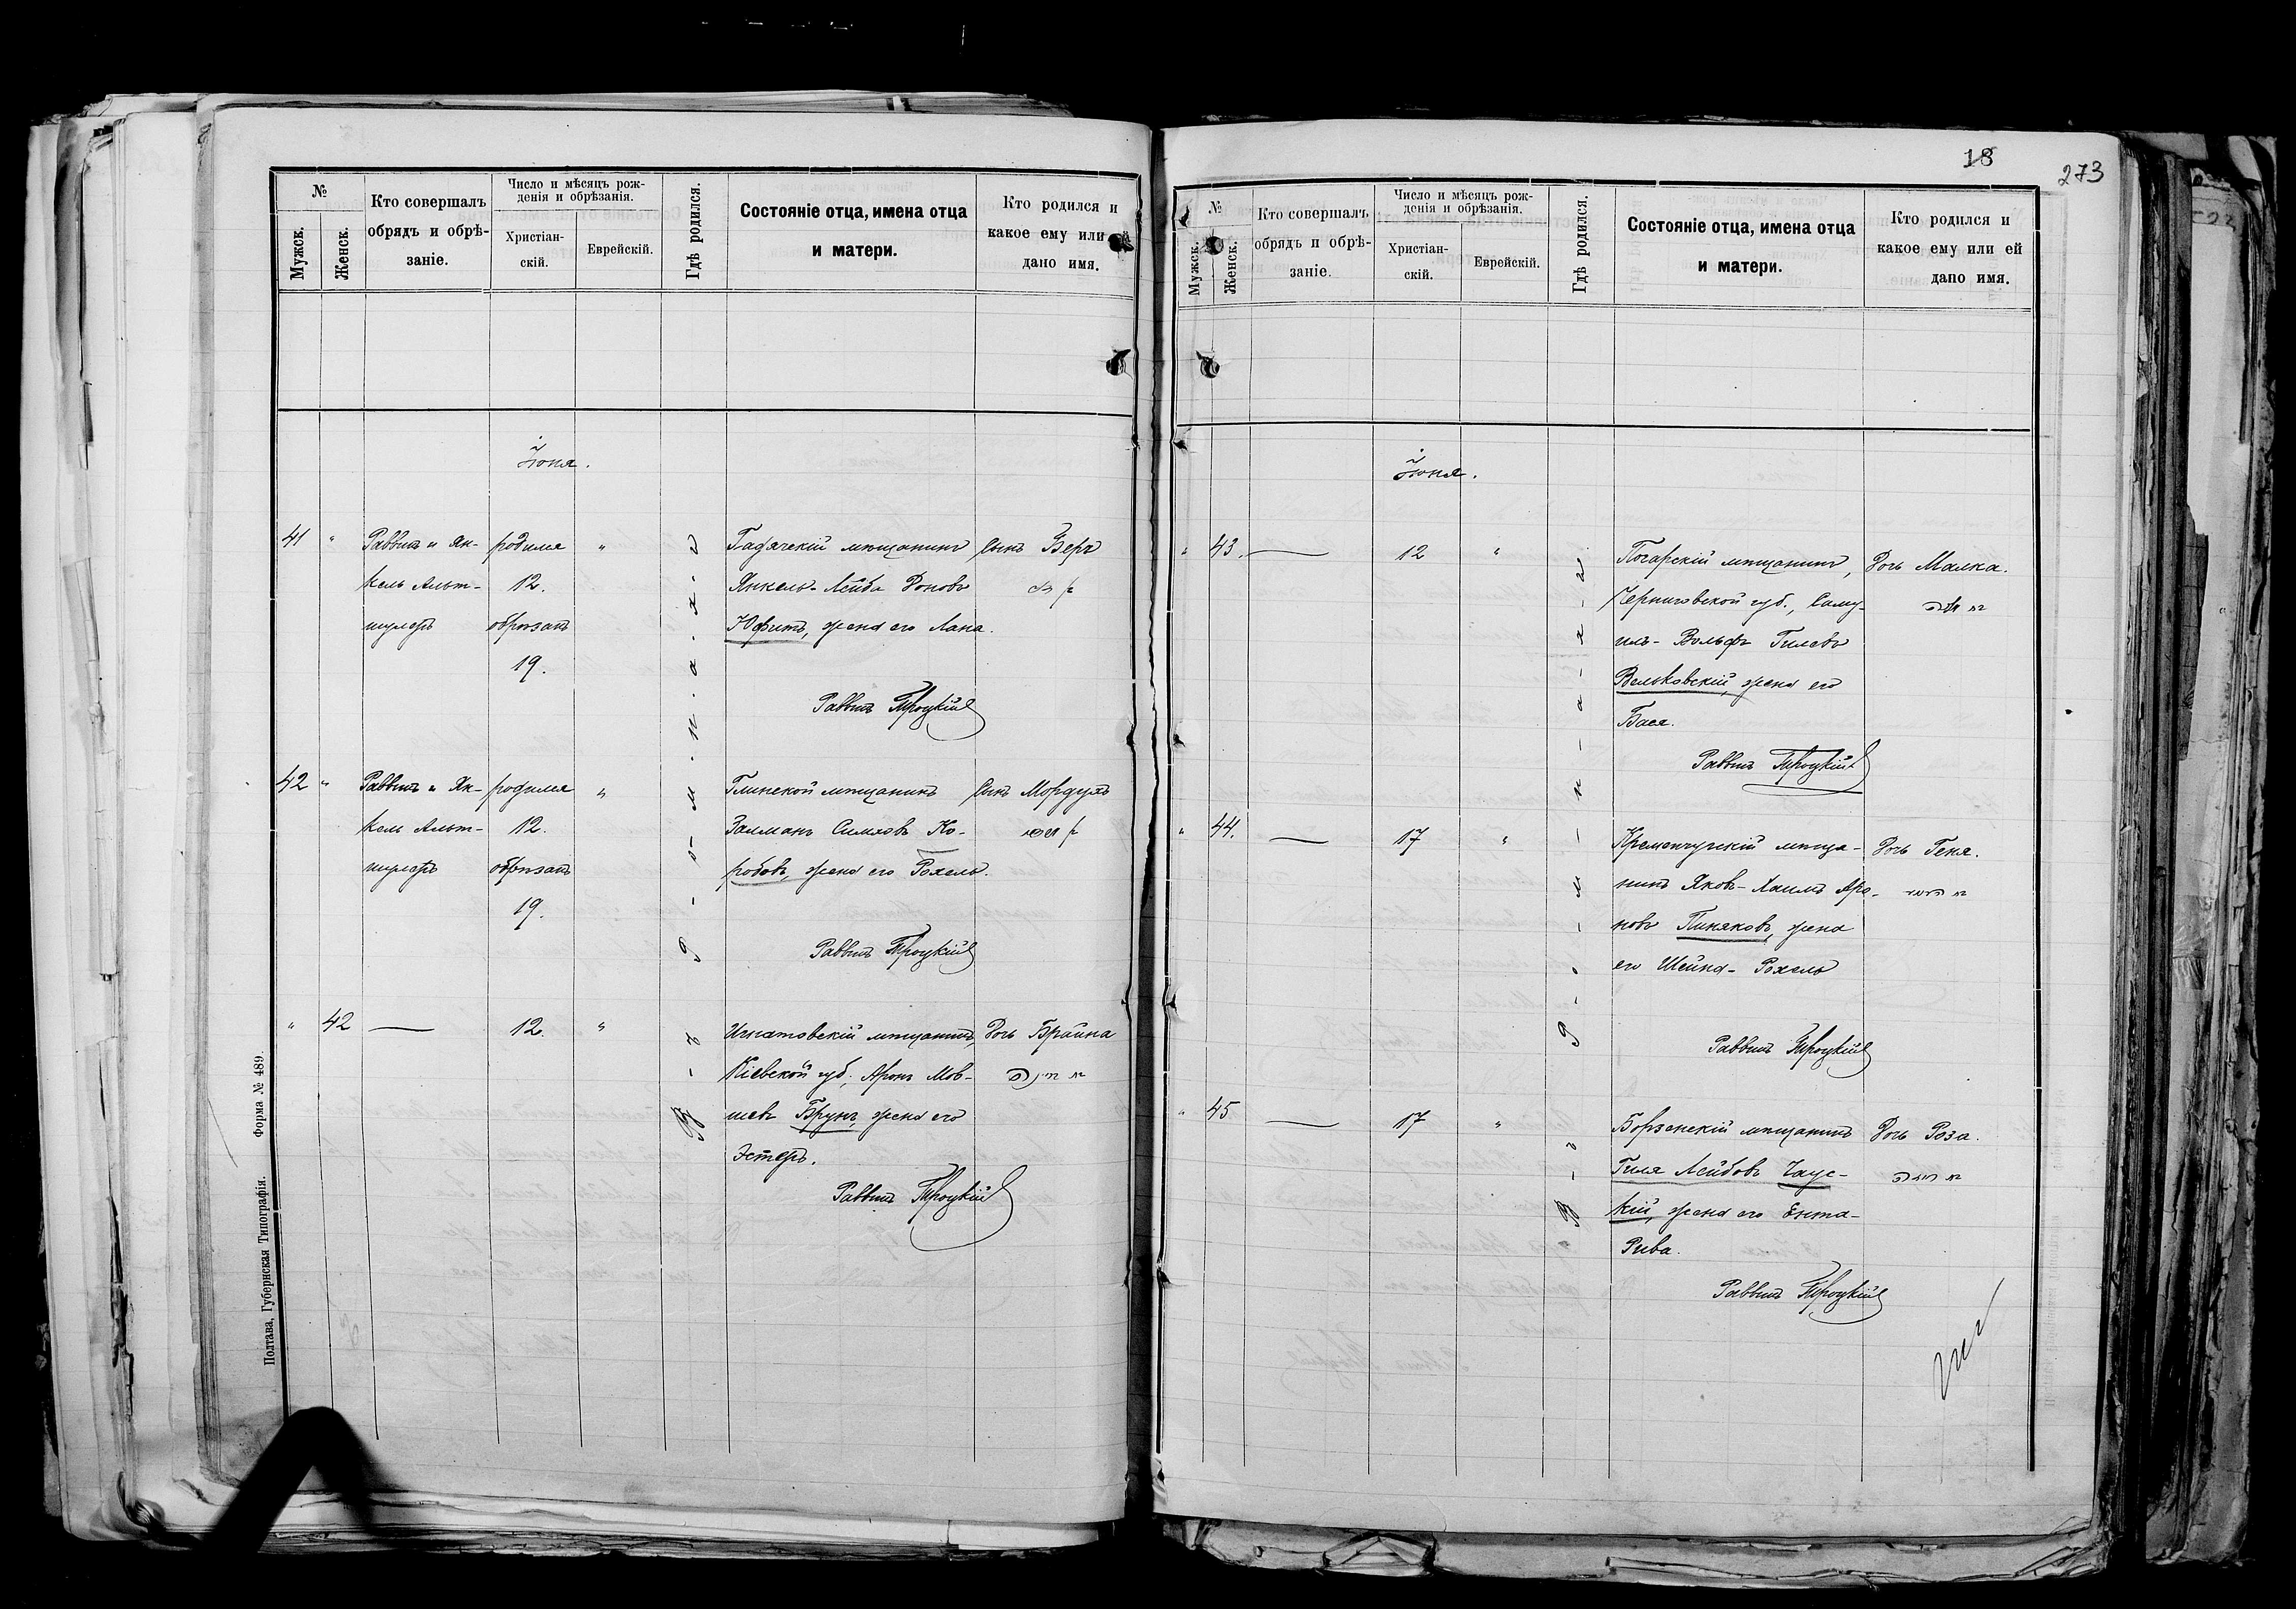 №
Мужск.
Женск.
Кто совершалъ
обрядъ и обрѣ-
заніе.
Число и мѣсяцъ рож-
денія и обрѣзанія.
Христіан-
скій.
Еврейскій.
Гдѣ родился.
Состояніе отца, имена отца
и матери.
Кто родился и
какое ему или
дано имя.
Іюня.
41 "
Раввинъ и Ян-
кель Альт-
шулеръ
родился
12.
обрѣзанъ
19.
"
Гадячскій мѣщанинъ
Янкель-Лейба
Юфитъ, жена его
Раввинъ Троцкій
Сынъ Беръ
42 "
Раввинъ и Ян-
кель Альт-
шулеръ
родился
12.
обрѣзанъ
19.
"
Глинской мѣщанинъ
Залманъ Симховъ Ко-
робовъ, жена его Рохель.
Раввинъ Троцкій
Сынъ Мордухъ
" 42
12.
"
мѣщанинъ,
Кіевской губ., Аронъ Мов-
шевъ Брунъ, жена его
Эстеръ.
Раввинъ Троцкій
Дочь Брайна
Въ Ромнахъ
Полтава, Губернская Типографія. Форма № 489.
18
273
№
Мужск.
Женск.
Кто совершалъ
обрядъ и обрѣ-
заніе.
Число и мѣсяцъ рож-
денія и обрѣзанія.
Христіан-
скій.
Еврейскій.
Гдѣ родился.
Состояніе отца, имена отца
и матери.
Кто родился и
какое ему или ей
дано имя.
Іюня.
" 43.
12
"
Погарскій мѣщанинъ,
Черниговской губ., Саму-
илъ-Вольфъ Гилевъ
Вельковскій, жена его
Бася.
Раввинъ Троцкій
Дочь Малка.
" 44.
17
"
Кременчугскій мѣща-
нинъ Яковъ-Хаимъ Аро-
новъ Пиняковъ, жена
его Шейна-Рохель
Раввинъ Троцкій
Дочь Геня.
" 45
17
"
Борзенскій мѣщанинъ
Гиля Лейбовъ Чаус-
кій, жена его Ента-
Рива.
Раввинъ Троцкій
Дочь Роза.
Въ Ромнахъ